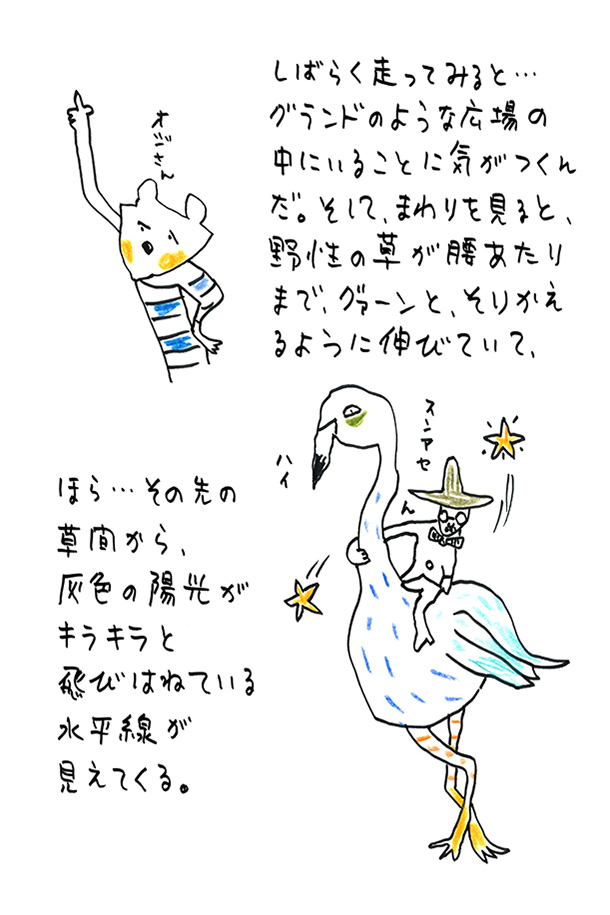 しばらく走ってみると…
グランドのような広場の
中にいることに気がつくん
だ。そして、まわりを見ると、
野性の草が腰あたり
まで、グァーンと、そりかえ
るように伸びていて、
オジさん
スンアセ
ん
ハイ
ほら…その先の
草間から、
灰色の陽光が
キラキラと
飛びはねている
水平線が
見えてくる。